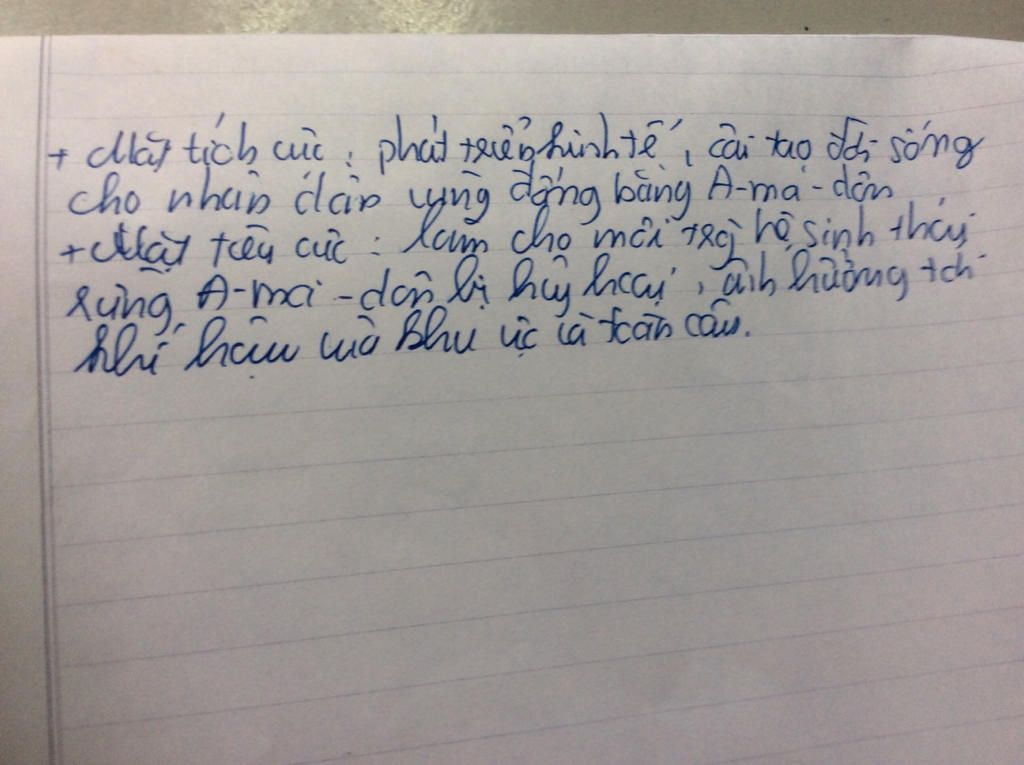 + Mặt tích cực : phát triển kinh tế, cải tạo đời sống
cho nhân dân vùng đồng bằng A-ma-dôn
+ Mặt tiêu cực : Làm cho môi trg hệ sinh thái
rừng A-ma-dôn bị hủy hoại, ảnh hưởng tới
khí hậu của khu vực và toàn cầu.